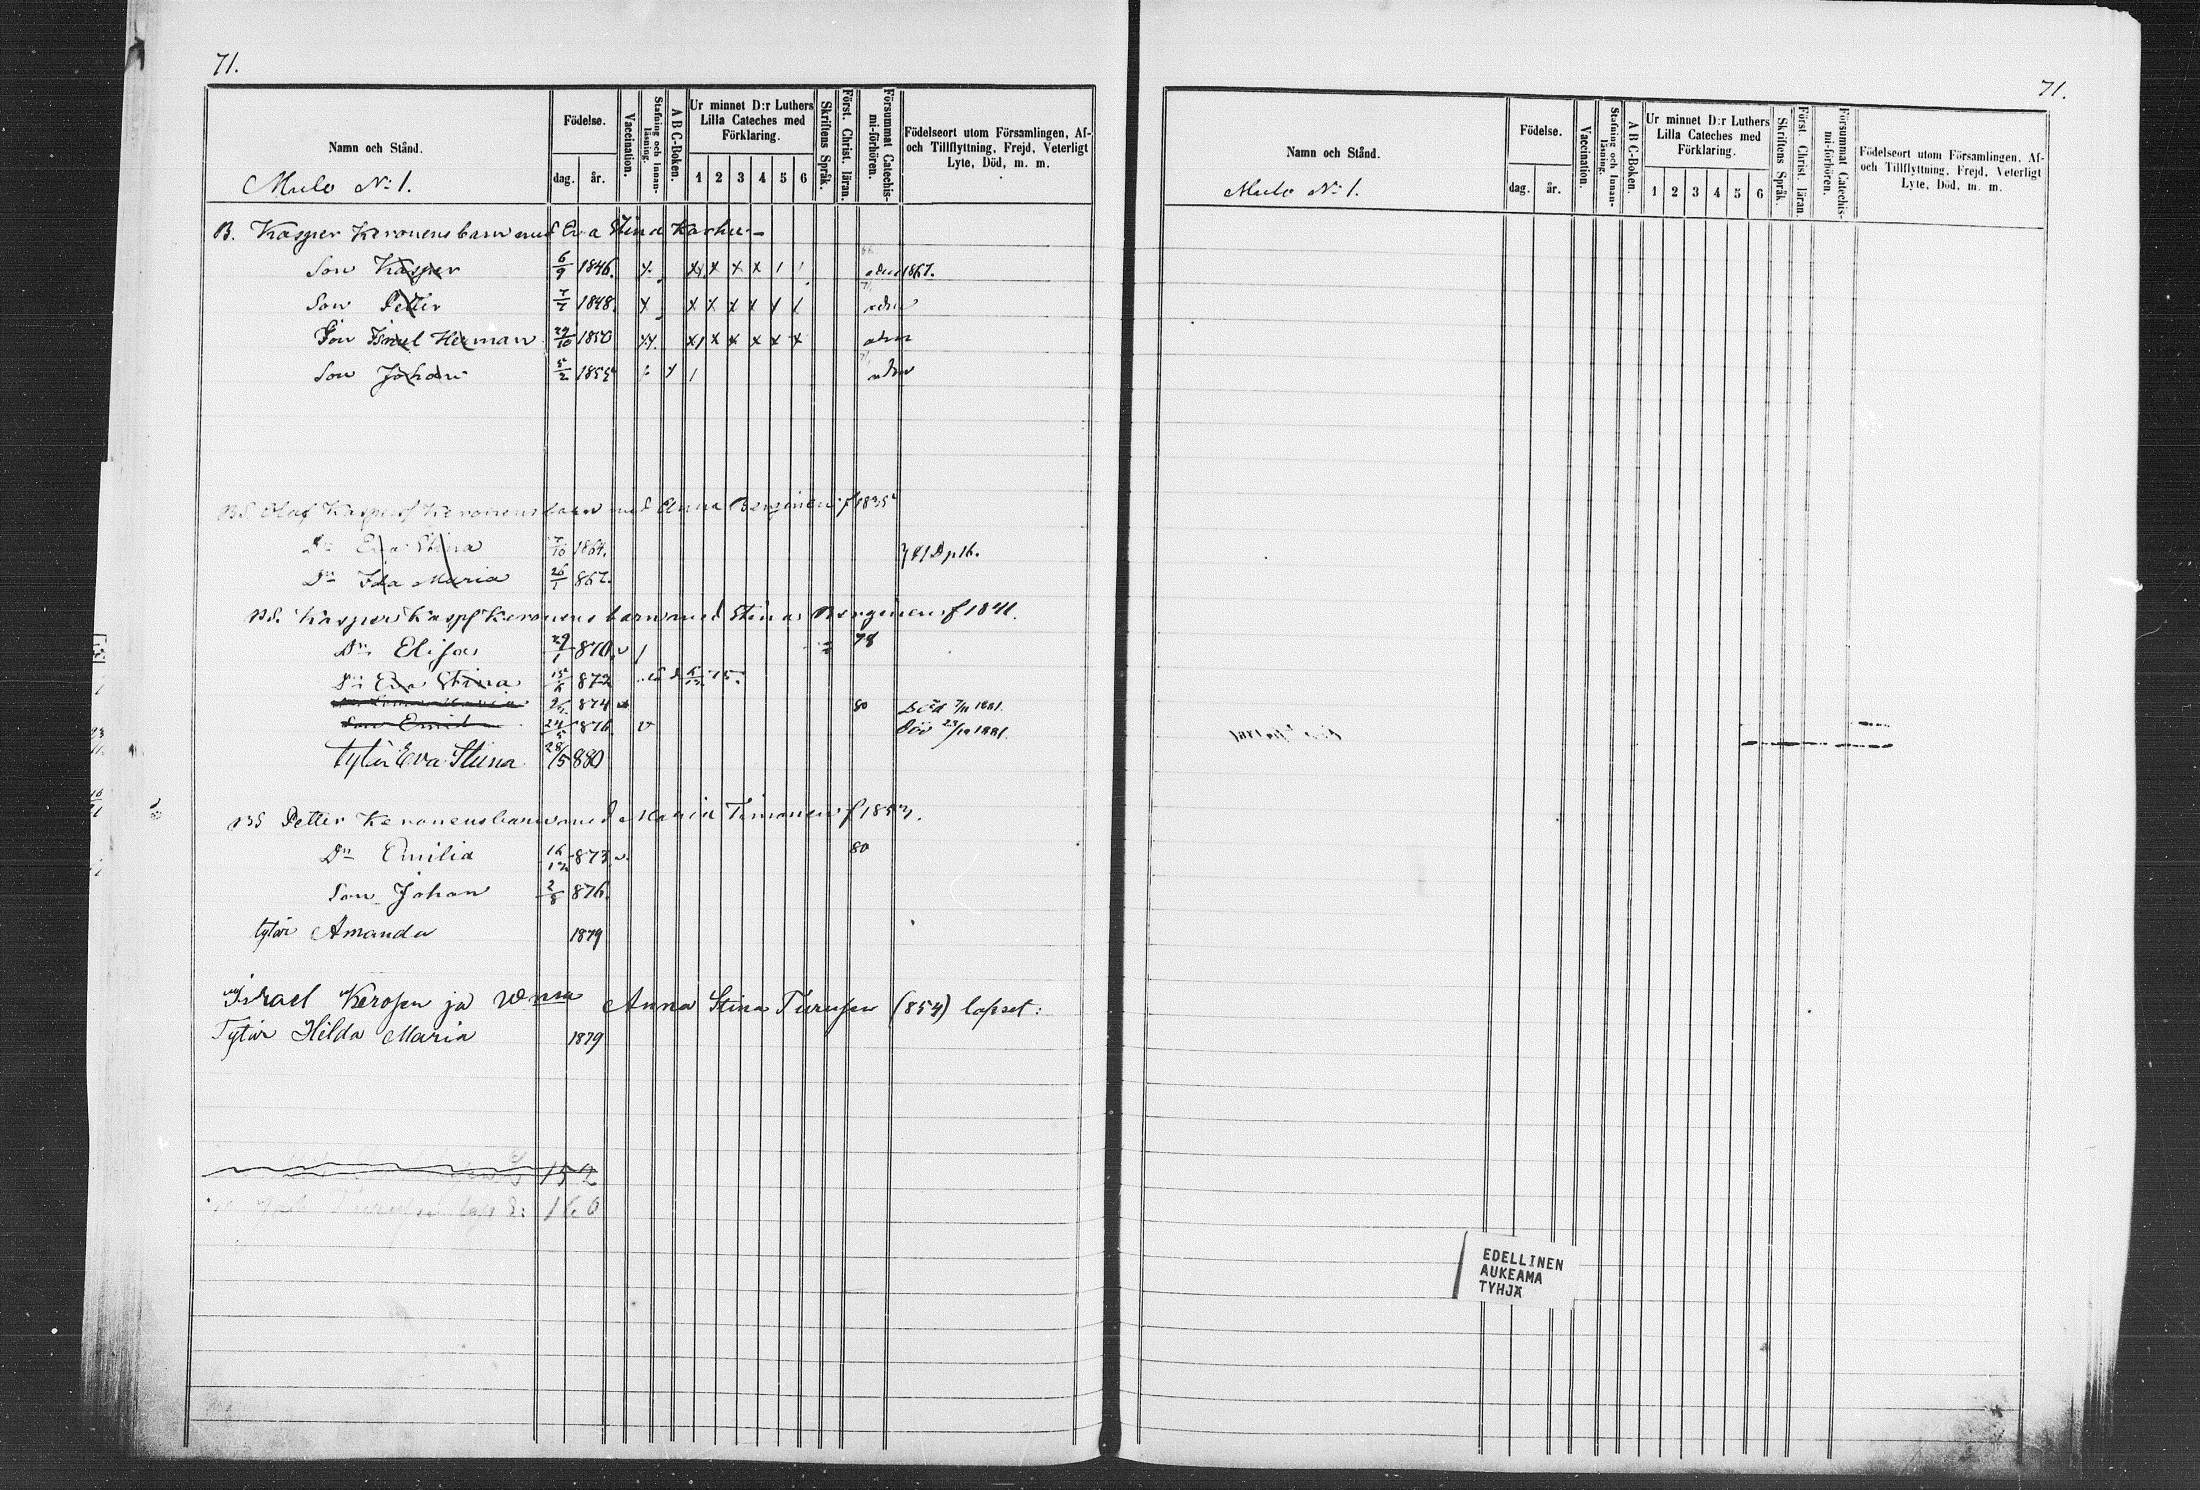 71.
Namn och Stånd.
Födelse.
dag. år.
Vaccination.
Stafning och Innanläsning.
A B C-Boken.
Ur minnet D:r Luthers Lilla Cateches med Förklaring.
1 2 3 4 5 6
Skriftens Språk.
Först. Christ. läran.
Försummat Catechismi-förhören.
Födelseort utom Församlingen, Af- och Tillflyttning, Frejd, Veterligt Lyte, Död, m. m.
Mulo No 1.
B. Kasper Keronens barn med Eva Stina Karhu
Son Kasper 6/9 1846. x x x x 1867.
Son Petter 7/7 1848. x x x x x
Son Israel Herman 29/10 1850 x x x x x x
Son Johan 5/2 1855
BS. Olof Kaspersf Keronens barn med Anna Berginen f 1835
Dr Eva Stina 7/10 1864.
Dr Ida Maria 26/1 867.
BS. Kasper Kaspf Keronens barn med Stina Berginen f 1841.
Dr Elisa 29/1 870. v 78
Dr Eva Stina 15/5 872
874 80 Död 7/11 1881.
Son Emil 24/5 876. v Död 23/10 1881.
tytär Eva Stiina 28/5 880
BS Petter Keronens barn med Maria Timonen f 1853.
Dr Emilia 16/12 873. v. 80
Son Johan 2/8 876.
tytär Amanda 1879
Israel Kerosen ja vmon Anna Stina Turusen (854) lapset:
Tytär Hilda Maria 1879
152
160
71.
Namn och Stånd.
Födelse.
dag. år.
Vaccination.
Stafning och Innanläsning.
A B C-Boken.
Ur minnet D:r Luthers Lilla Cateches med Förklaring.
1 2 3 4 5 6
Skriftens Språk.
Först. Christ. läran.
Försummat Catechismi-förhören.
Födelseort utom Församlingen, Af- och Tillflyttning, Frejd, Veterligt Lyte, Död, m. m.
Mulo No 1.
EDELLINEN
AUKEAMA
TYHJÄ